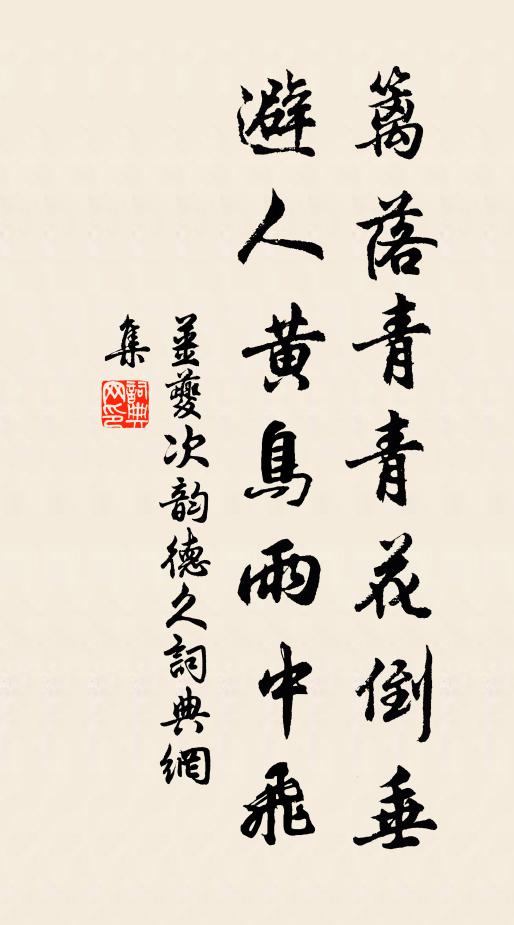 篱落青青花倒垂
避人黄鳥雨中飛
姜夔次韵德久詞典網
集
詞典
网印